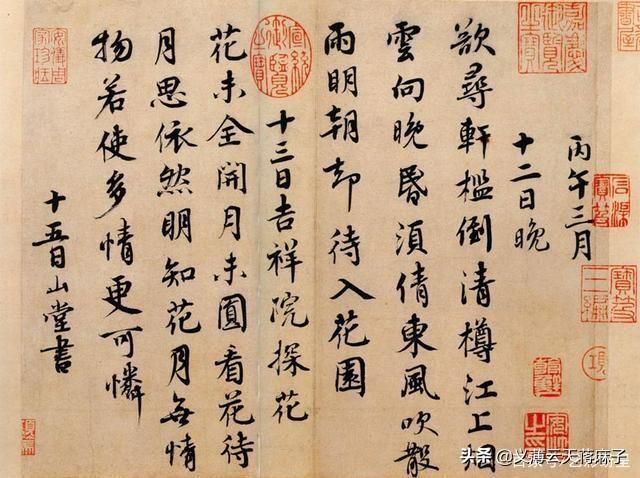 丙午三月
十二日晚
欲尋軒檻倒清樽江上烟
雲向晚昏須倩東風吹散
雨明朝却待入花園
十三日吉祥院探花
花未全開月未圓看花待
月思依然明知花月無情
物若使多情更可憐
十五日山堂書
头条 @义薄云天蒋麻子